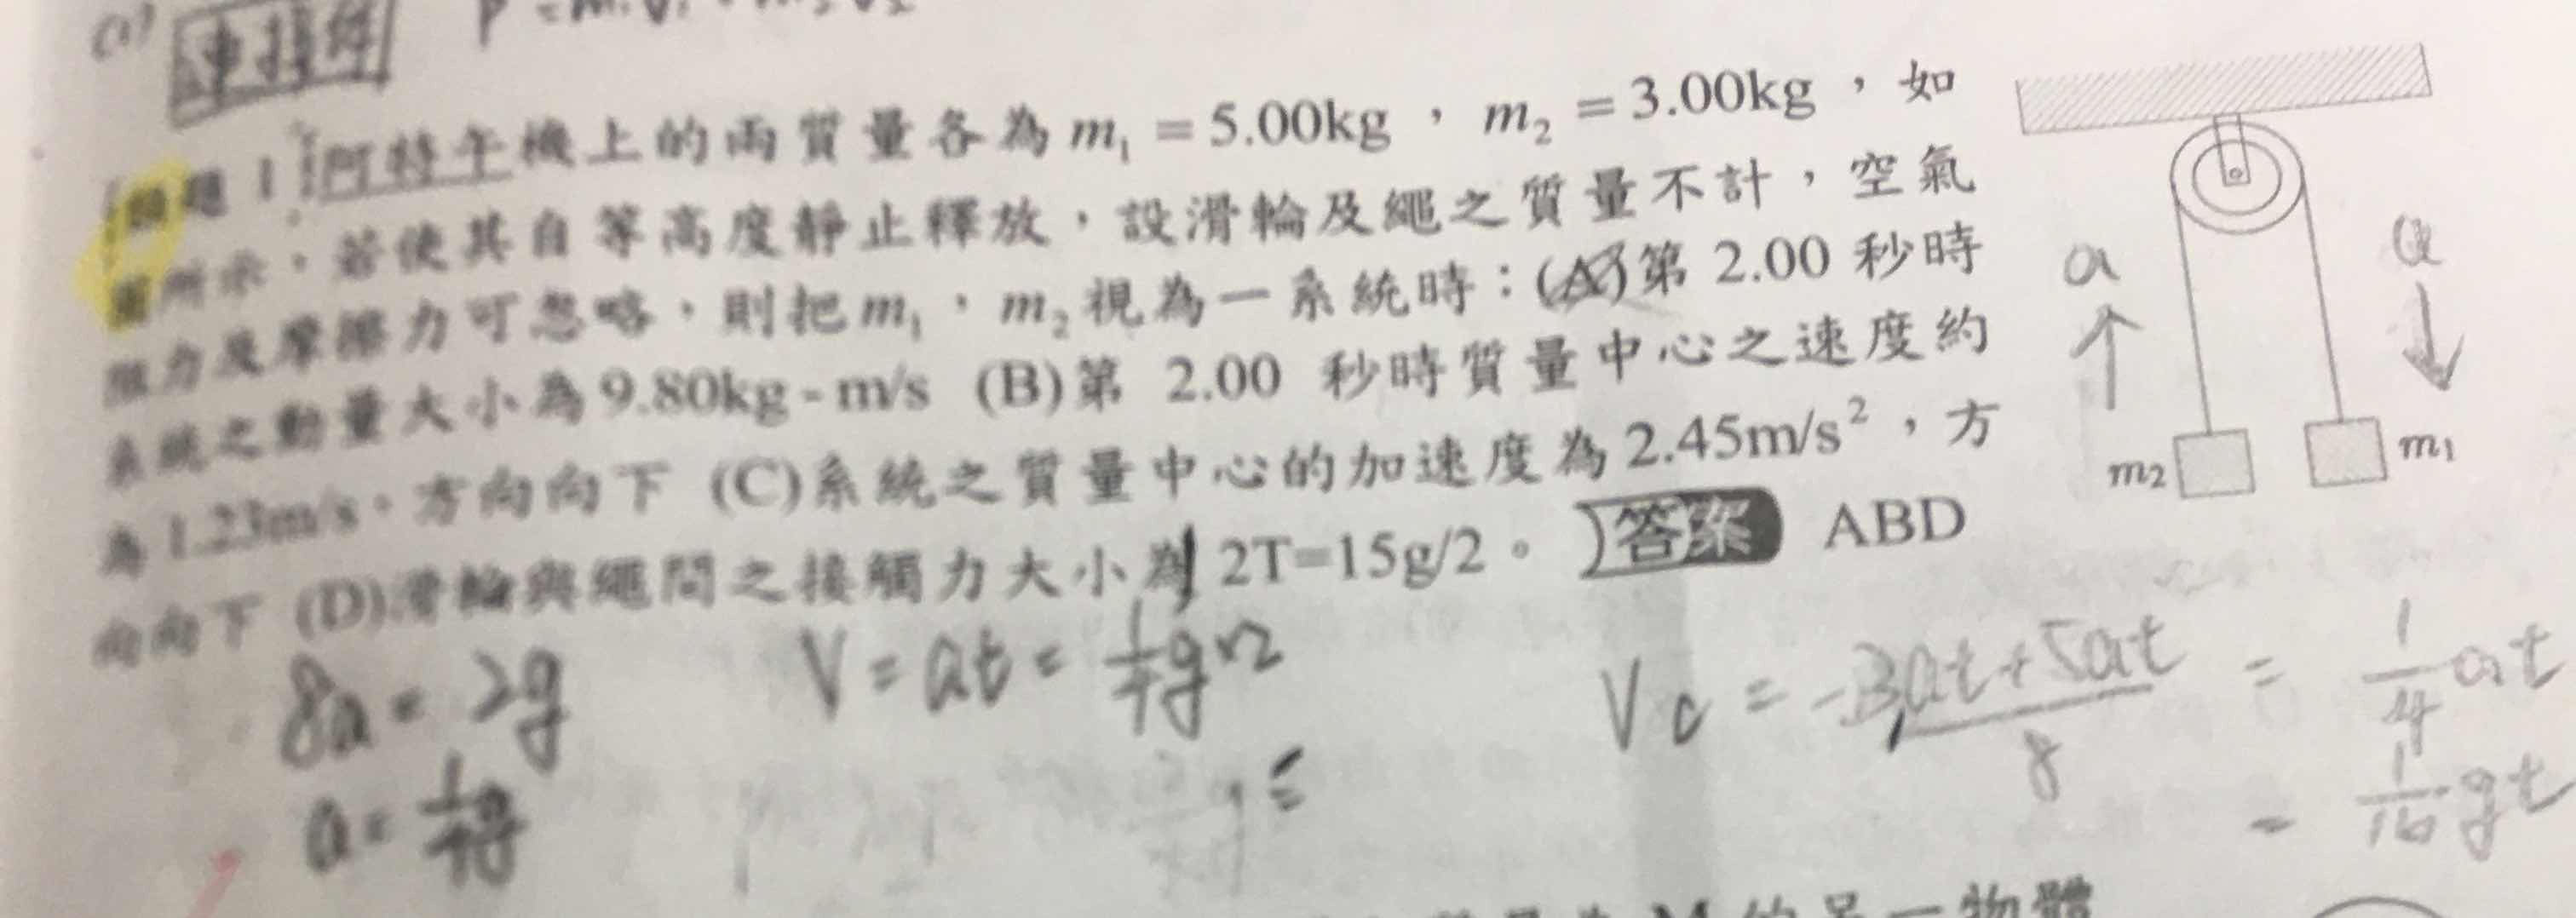 (1) 連接體
P = m₁v₁ + m₂v₂
範題 1 阿特午機上的兩質量各為 m₁ = 5.00kg，m₂ = 3.00kg，如
圖所示，若使其自等高度靜止釋放，設滑輪及繩之質量不計，空氣
阻力及摩擦力可忽略，則把 m₁，m₂ 視為一系統時：(A)第 2.00 秒時
系統之動量大小為 9.80kg-m/s (B)第 2.00 秒時質量中心之速度約
為 1.23m/s，方向向下 (C)系統之質量中心的加速度為 2.45m/s²，方
向向下 (D)滑輪與繩間之接觸力大小為 2T=15g/2。 答案 ABD
a
a
m₂
m₁
8a = 2g
a = 1/4 g
V = at = 1/4 g × 2
=
Vc = (-3at+5at)/8 = 1/4 at
= 1/16 gt
的另一物體